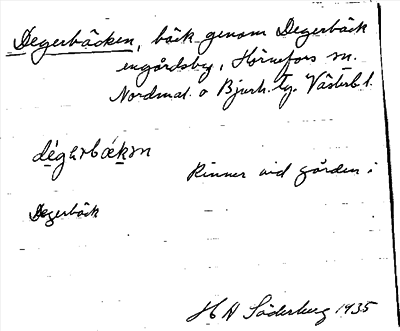 Degerbäcken, bäck genom Degerbäck
engårdsby, Hörnefors sn.
Nordmal. o Bjurh. tg. Västerb. l.
dégɐrbækən
Rinner vid gården i
Degerbäck
H A Söderberg 1935